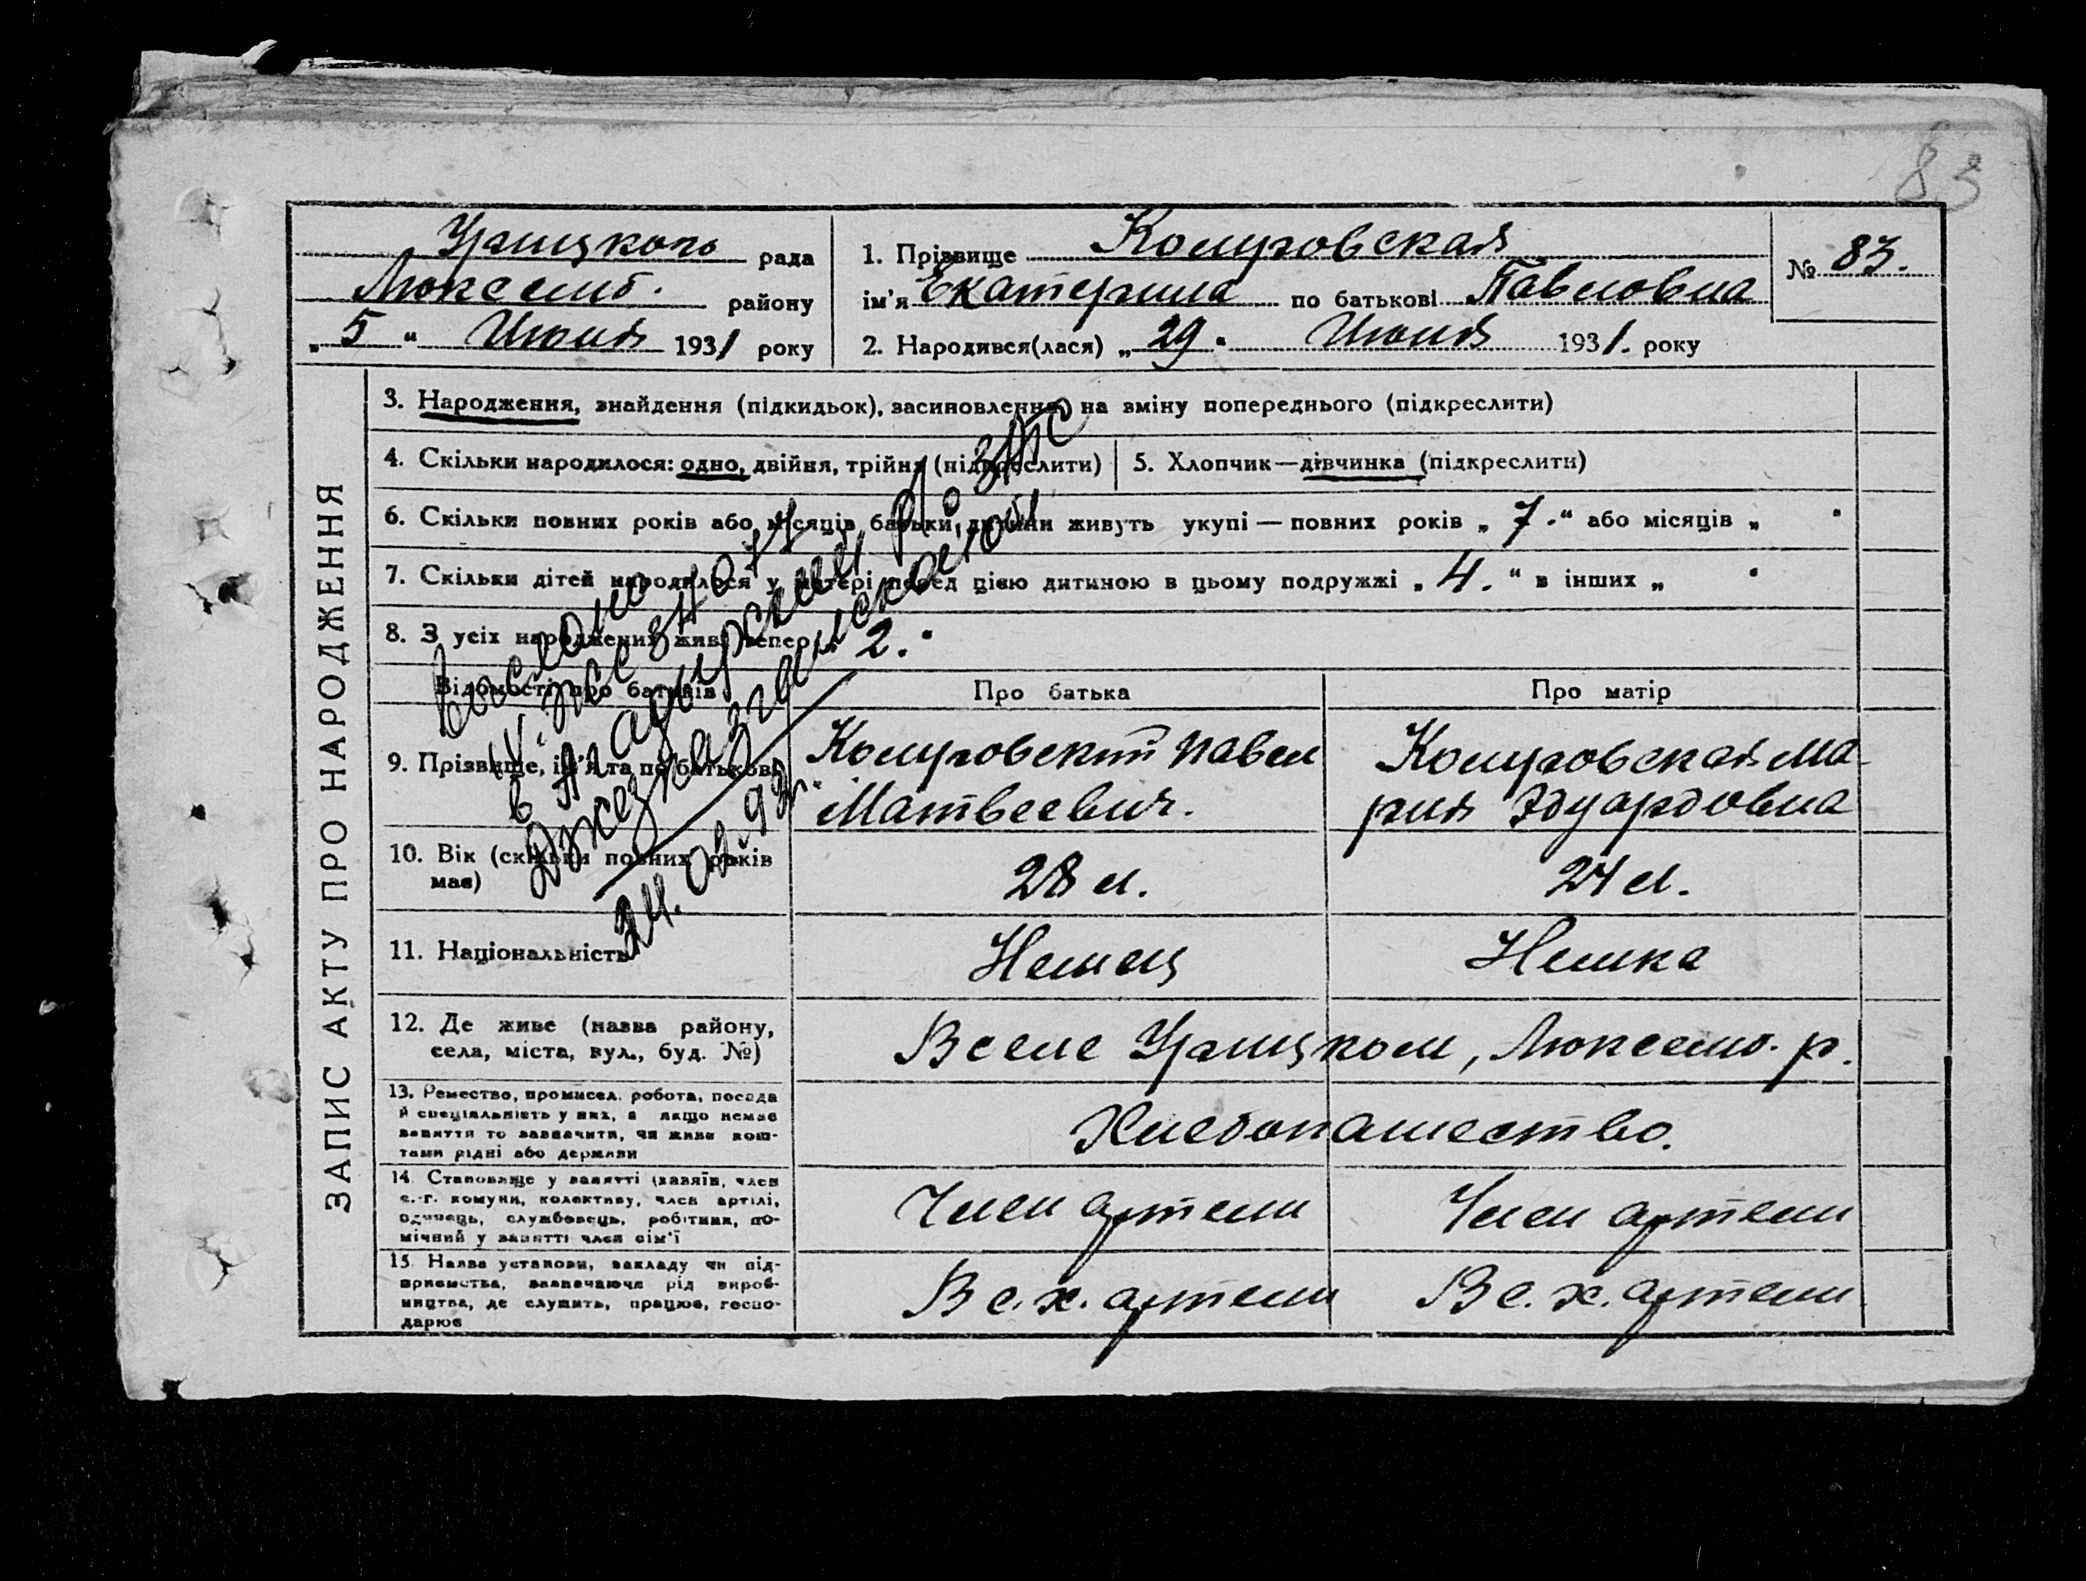 83
Урицкого рада
Люксемб. району
„ 5 “ Июня 1931 року
1. Прізвище Комуровская
ім'я Екатерина по батькові Павловна
2. Народився(лася) „ 29 “ Июня 1931. року
№ 83.
ЗАПИС АКТУ ПРО НАРОДЖЕННЯ
3. Народження, знайдення (підкидьок), засиновлення, на зміну попереднього (підкреслити)
4. Скільки народилося: одно, двійня, трійня (підкреслити)
5. Хлопчик—дівчинка (підкреслити)
6. Скільки повних років або місяців батьки дитини живуть укупі — повних років „ 7. “ або місяців „ “
7. Скільки дітей народилося у матері перед цією дитиною в цьому подружжі „ 4. “ в інших „ “
8. З усіх народжених живі тепер 2.
Відомості про батьків
Про батька
Про матір
9. Прізвище, ім'я та по батькові
Комуровский Павел
Матвеевич.
Комуровская Ма-
рия Эдуардовна
10. Вік (скільки повних років
має)
28 л.
24 л.
11. Національність
Немец
Немка
12. Де живе (назва району,
села, міста, вул., буд. №)
В селе Урицком, Люксемб. р.
13. Ремество, промисел. робота, посада
й спеціяльність у них, а якщо немає
заняття то зазначити, чи живе кош-
тами рідні або держави
Хлебопашество.
14. Становище у занятті (хазяїн, член
с.-г. комуни, колективу, член артілі,
одинець, службовець, робітник, по-
мічний у занятті член сім'ї
Член артели
Член артели
15. Назва установи, закладу чи під-
приємства, зазначаючи рід вироб-
ництва, де служить, працює, госпо-
дарює
В с. х. артели
В с. х. артели
Выслано
в Агадырский р/о ЗАГС
Джезказганской обл